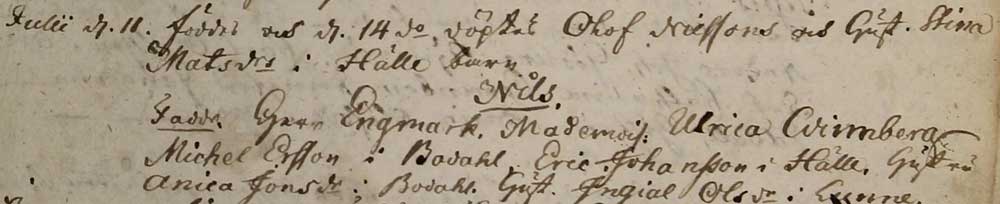 Julii d. 11. föddes och d. 14 do döptes Olof Nilssons och Hust. Stina
Matsdrs i Hälle barn
Nils.
Fadd. Herr Engmark. Mademois: Ulrica
Michel Ersson i Bodahl, Eric Johansson i Hälle. Hustru
Anica Jonsdr i Bodahl. Hust. Ingial Olsdr i Lunne.